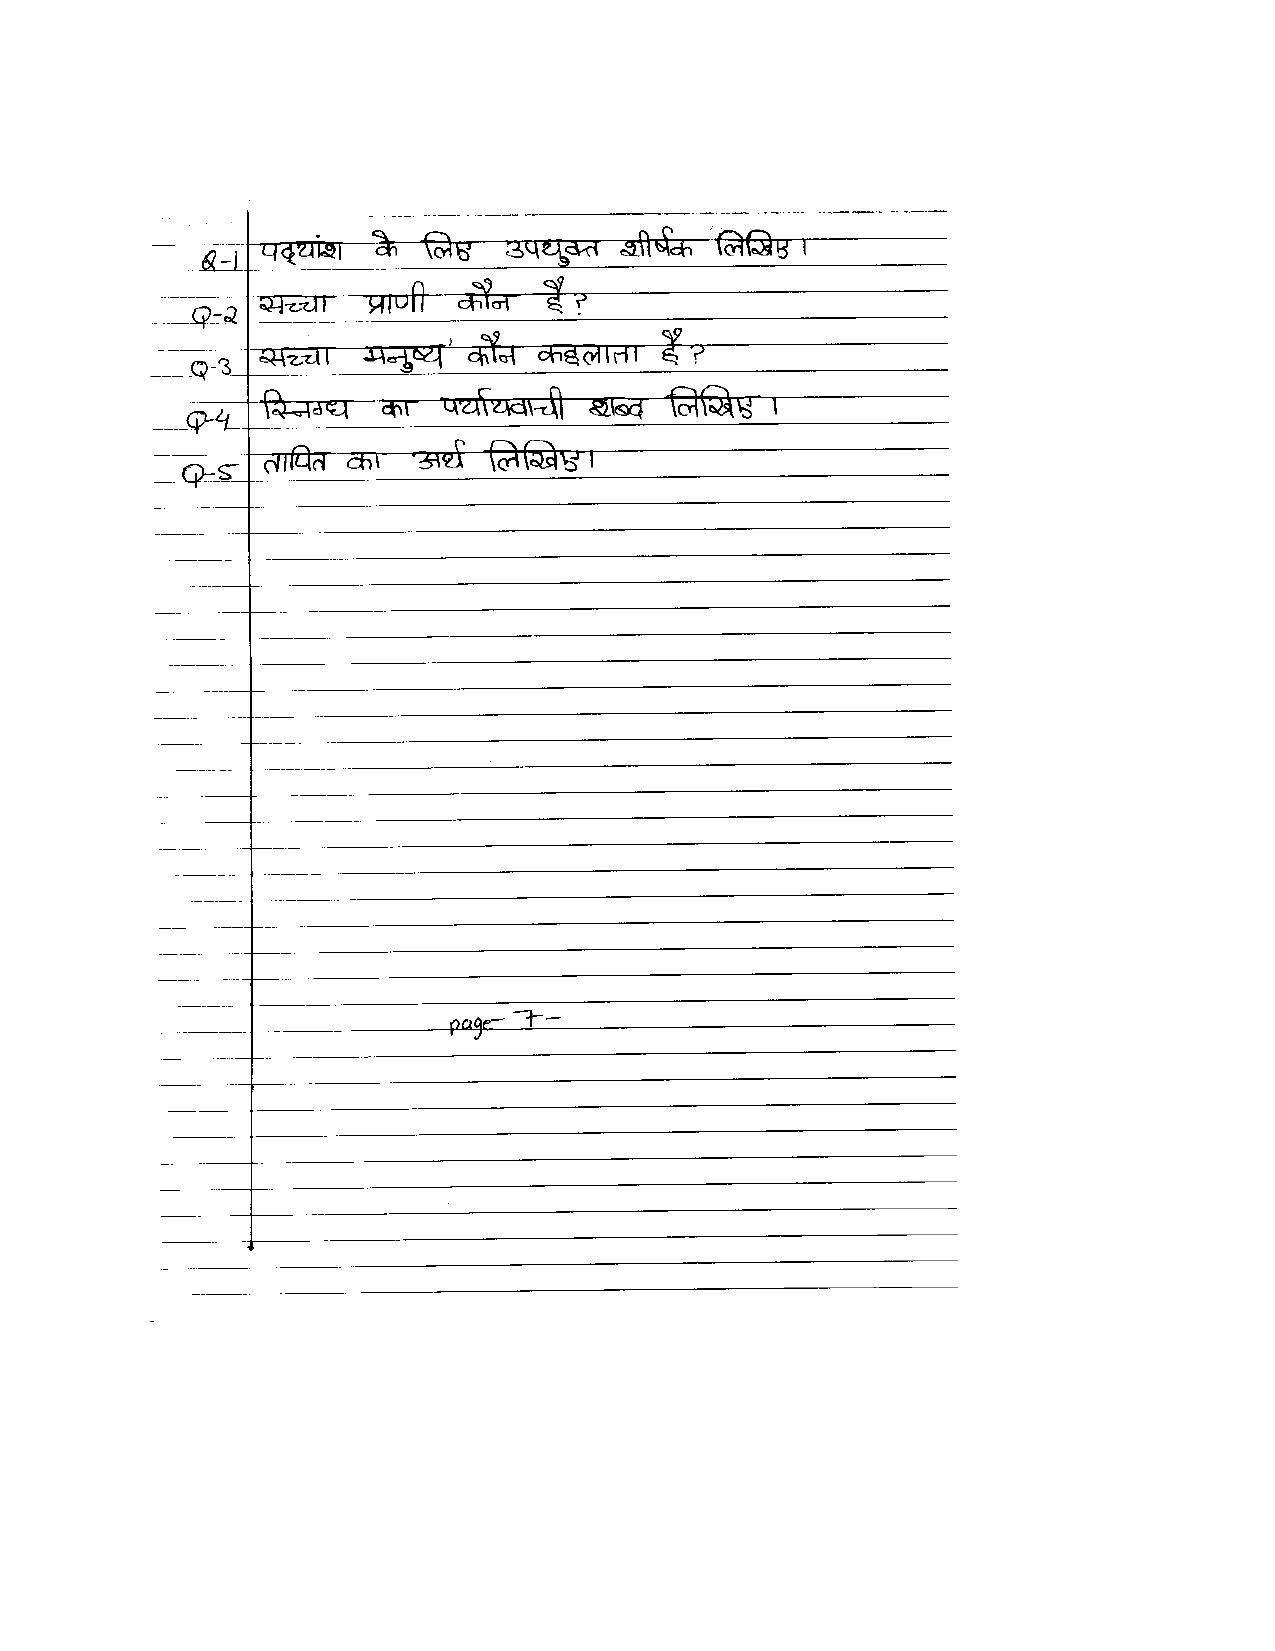 Q-1 पद्यांश के लिए उपयुक्त शीर्षक लिखिए।
Q-2 सच्चा प्राणी कौन है?
Q-3 सच्चा मनुष्य कौन कहलाता है?
Q-4 स्निग्ध का पर्यायवाची शब्द लिखिए।
Q-5 तापित का अर्थ लिखिए।
page- 7-